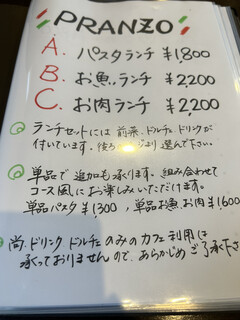 PRANZO
A. パスタランチ ¥1,800
B. お魚ランチ ¥2,200
C. お肉ランチ ¥2,200
ランチセットには 前菜、ドルチェ ドリンクが
付いています。後ろのページより 選んで下さい。
単品で 追加も承ります。組み合わせて
コース風に お楽しみいただけます。
単品パスタ ¥1,300, 単品お魚、お肉 ¥1,600
尚、ドリンク ドルチェ のみの カフェ 利用は
承っておりませんので、あらかじめ ご了承下さ